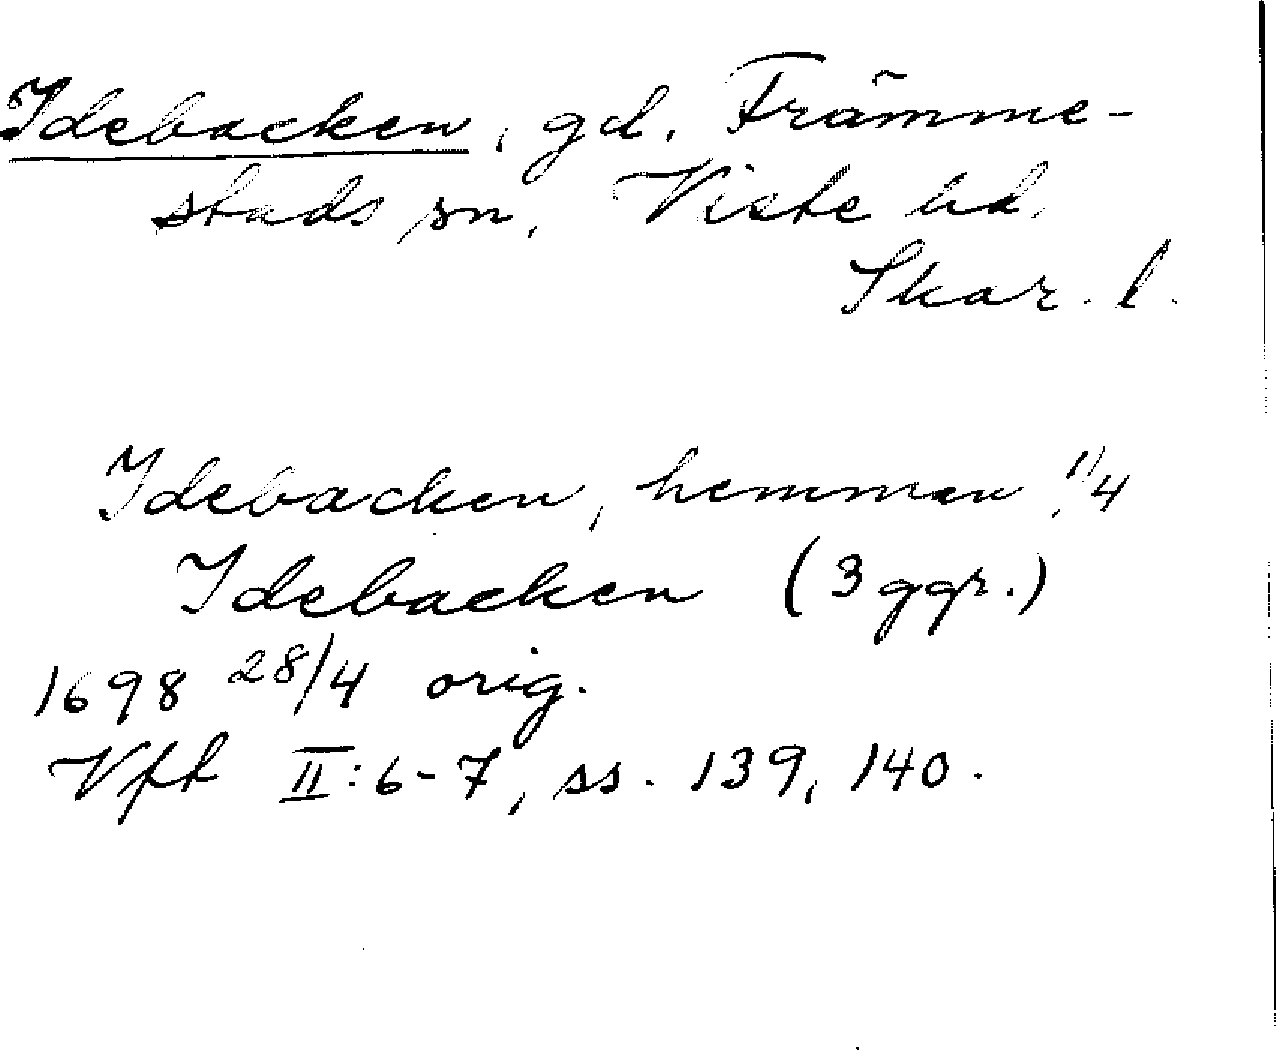 Idebacken, gd. Främme-
stads sn, Viste hd.
Skar. l.
Idebacken, hemman 1/4
Idebacken (3 ggr.)
1698 28/4 orig.
Vft II:6-7, ss. 139, 140.